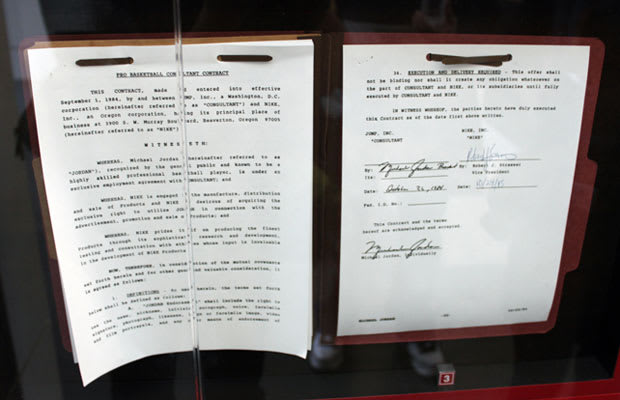 PRO BASKETBALL CONSULTANT CONTRACT
THIS CONTRACT, made and entered into effective
September 1, 1984, by and between JUMP, Inc., a Washington, D.C.
corporation (hereinafter referred to as "CONSULTANT") and NIKE,
Inc., an Oregon corporation, having its principal place of
business at 3900 S. W. Murray Boulevard, Beaverton, Oregon 97005
(hereinafter referred to as "NIKE")
WITNESSETH:
WHEREAS, Michael Jordan (hereinafter referred to as
"JORDAN"), recognized by the general public and known to be a
highly skilled professional basketball player, is under an
exclusive employment agreement with CONSULTANT; and
WHEREAS, NIKE is engaged in the manufacture, distribution
and sale of Products and NIKE is desirous of acquiring the
exclusive right to utilize JORDAN in connection with the
advertisement, promotion and sale of Products; and
WHEREAS, NIKE prides itself on producing the finest
Products through its sophisticated research and development,
testing and consultation with whose input is invaluable
in the development of NIKE Products
NOW, THEREFORE, in consideration of the mutual covenants
set forth herein and for other good and valuable consideration, it
is agreed as follows:
1. DEFINITIONS - As used herein, the terms set forth
below shall be defined as follows:
A. "JORDAN Endorsement" shall include the right to
use the name, nickname, initials, autograph, voice, facsimile
signature, photograph, likeness, image or facsimile image, video
and film portrayals, and any means of endorsement of
34. EXECUTION AND DELIVERY REQUIRED - This offer shall
not be binding nor shall it create any obligation whatsoever on
the part of CONSULTANT and NIKE, or its subsidiaries until fully
executed by CONSULTANT and NIKE.
IN WITNESS WHEREOF, the parties hereto have duly executed
this Contract as of the date first above written.
JUMP, INC. NIKE, INC.
"CONSULTANT" "NIKE"
By: Michael Jordan By: Robert J. Strasser
Its: Vice President
Date: October 26, 1984 Date:
Fed. I.D. No.:
This Contract and the terms
hereof are acknowledged and accepted.
Michael Jordan
Michael Jordan, individually
MICHAEL JORDAN
3